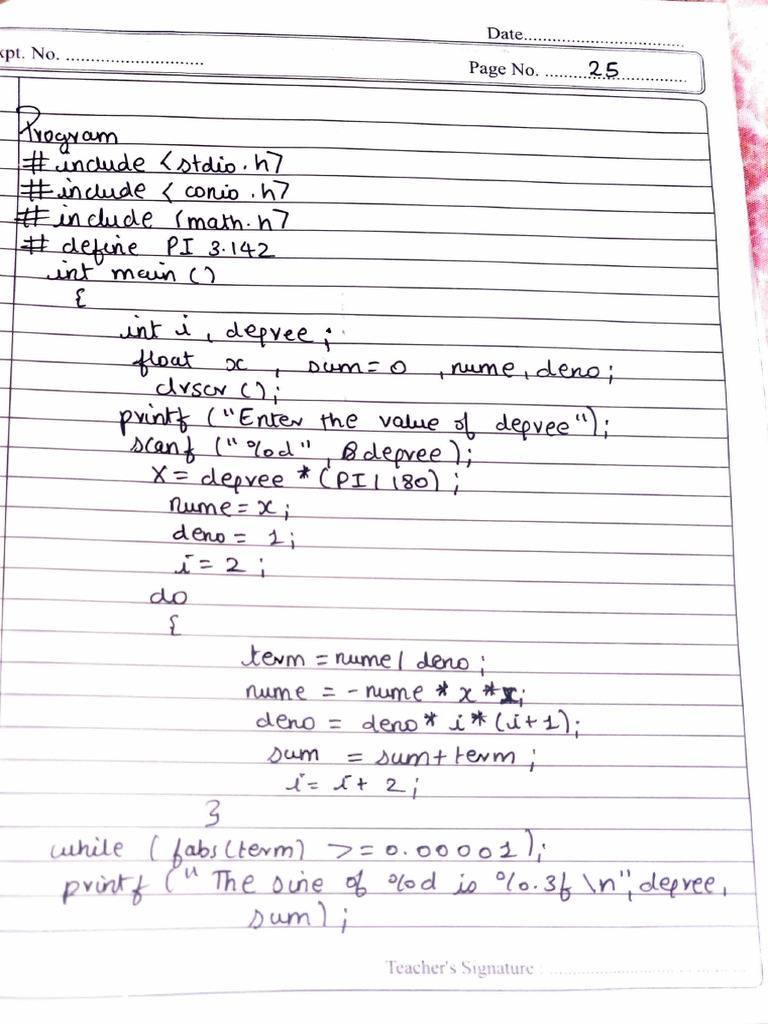 Date...................................
xpt. No. ..............................
Page No. ..........25..................
Program
# include <stdio.h>
# include <conio.h>
# include <math.h>
# define PI 3.142
int main ()
{
int i, degree;
float x, sum=0, nume, deno;
clrscr ();
printf ("Enter the value of degree");
scanf ("%d", &degree);
X = degree * (PI / 180);
nume = x;
deno = 1;
i = 2;
do
{
term = nume / deno;
nume = - nume * x * x;
deno = deno * i * (i+1);
sum = sum + term;
i = i + 2;
}
while (fabs(term) >= 0.00001);
printf (" The sine of %d is %.3f \n", degree,
sum);
Teacher's Signature : ..............................